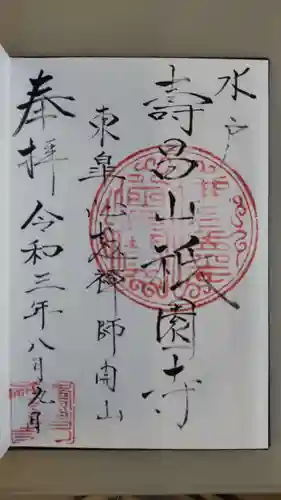 水戸
壽昌山祇園寺
東皐心越禅師開山
奉拝 令和三年八月九日